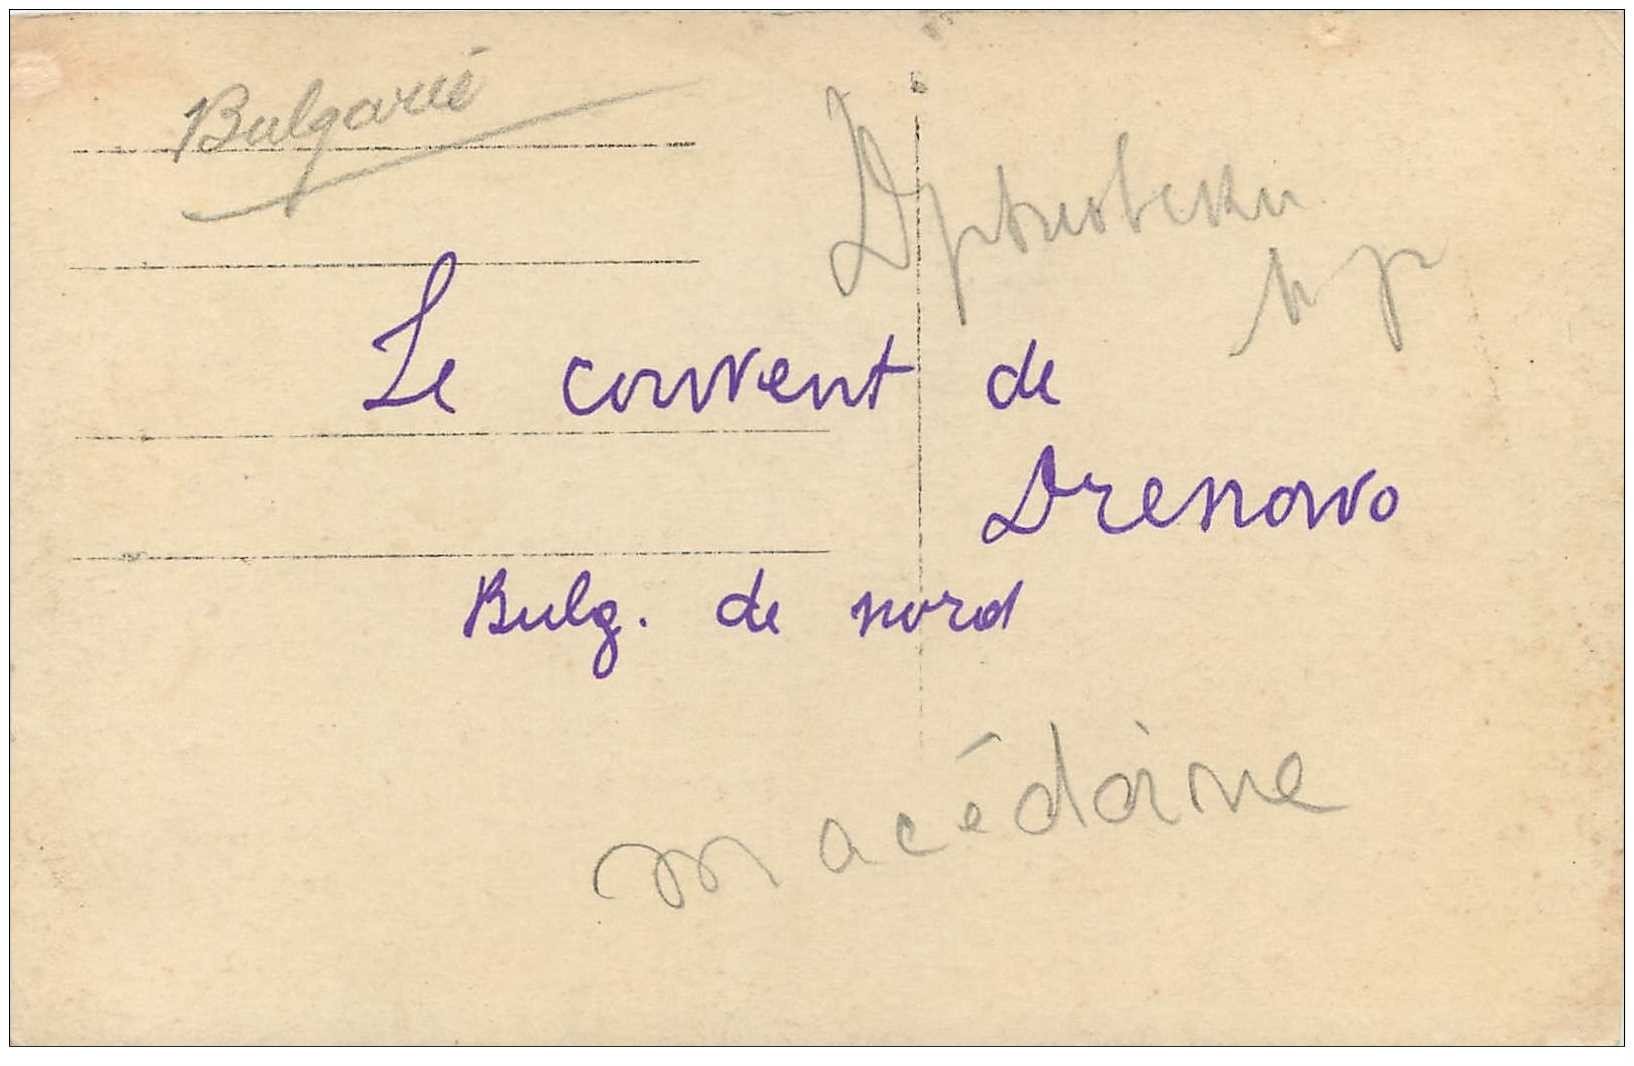 Bulgarie
Le couvent de
Drenowo
Bulg. de nord
Macédoine